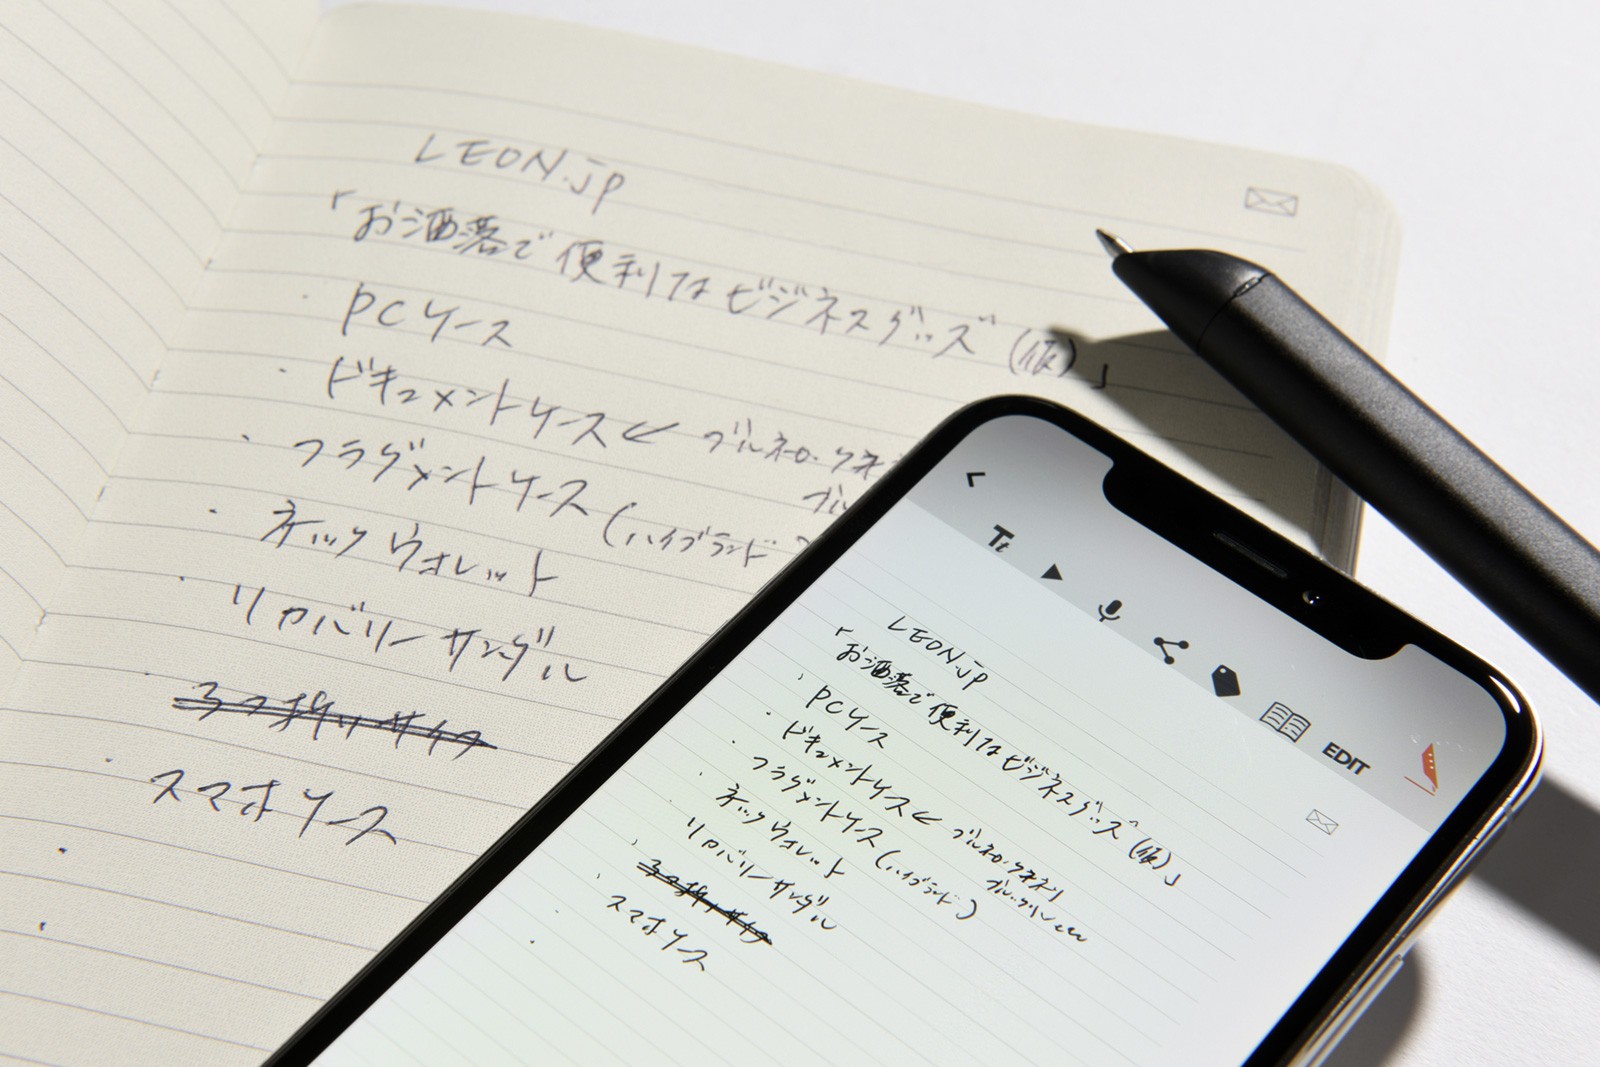 LEON.jp
「お洒落で便利なビジネスグッズ(仮)」
・PCケース
・ドキュメントケース← ブルネロ・クチネ
ブル
・フラグメントケース(ハイブランド)
・ネックウォレット
・リカバリーサンダル
・三つ折りサイフ
・スマホケース
・
・
Tt
EDIT
LEON.jp
「お洒落で便利なビジネスグッズ(仮)」
・PCケース
・ドキュメントケース← ブルネロ・クチネリ
・フラグメントケース(ハイブランド)
・ネックウォレット
・リカバリーサンダル
・三つ折りサイフ
・スマホケース
・